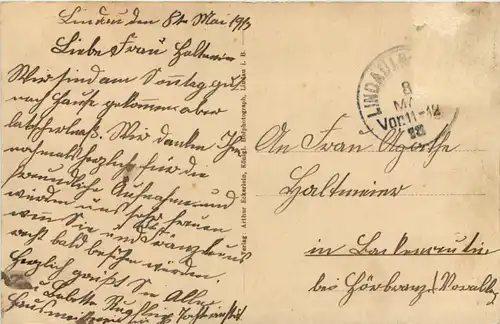 Lindau den 8ten Mai 1913
Liebe Frau Haltmeier
Wir sind am Sonntag gut
nach Hause gekommen aber
Wir danken Ihnen
nochmals herzlich für die
freundliche Aufnahme und
würden uns sehr freuen
wen Sie und Franz uns
recht bald besuchen werden.
Herzlich grüßt Sie Alle
Babette
Verlag: Arthur Eckerlein, Königl. Hofphotograph, Lindau i. B.
LINDAU
8
MA
Vor. 11-12
An Frau Agathe
Haltmeier
in
bei Hörbranz/Voralbg